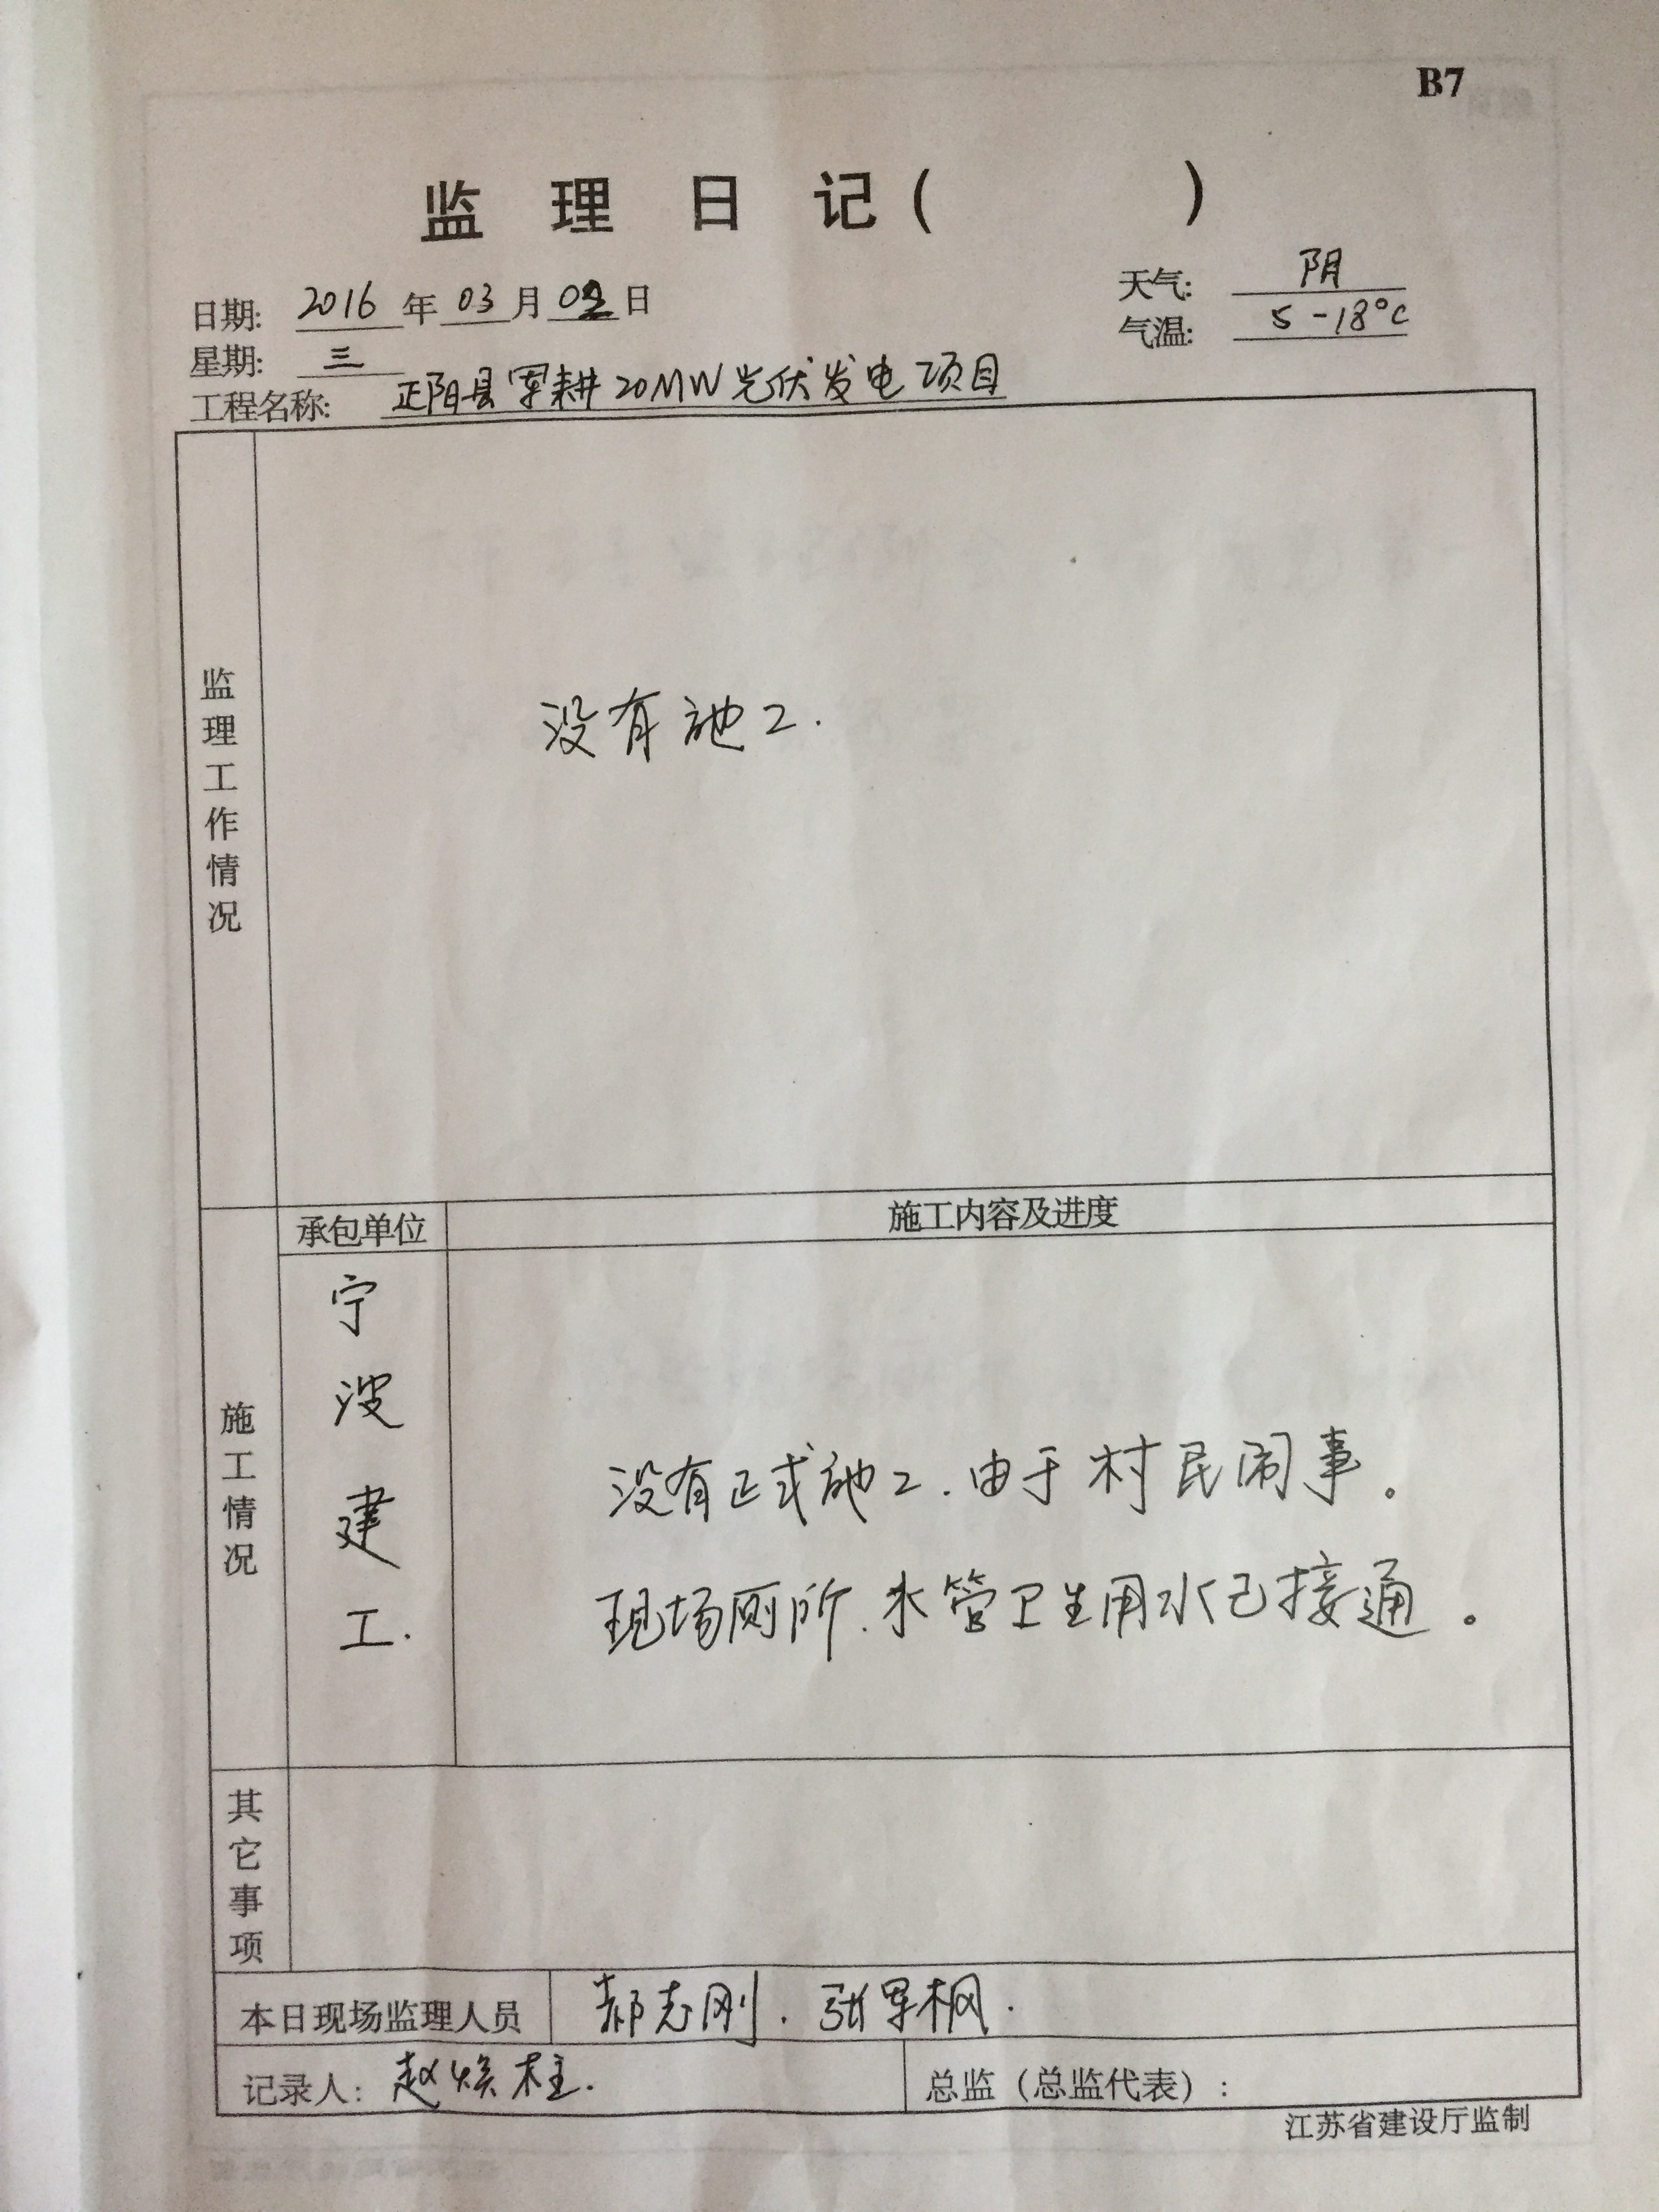 B7
监 理 日 记 (　　　)
日期: 2016 年 03 月 02 日
天气: 阴
气温: 5-18°C
星期: 三
工程名称: 正阳县军耕20MW光伏发电项目
监理工作情况
没有施工.
承包单位
施工内容及进度
施工情况
宁波建工.
没有正式施工.由于村民闹事。
现场厕所.水管卫生用水已接通。
其它事项
本日现场监理人员
郝志刚.张军枫.
记录人: 赵焕柱.
总监（总监代表）:
江苏省建设厅监制